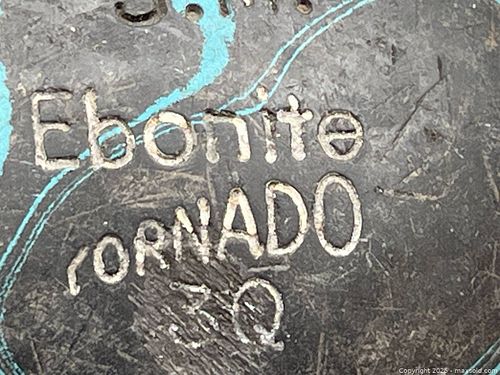 Ebonite
TORNADO
3Q
Copyright 2025 - maxsold.com